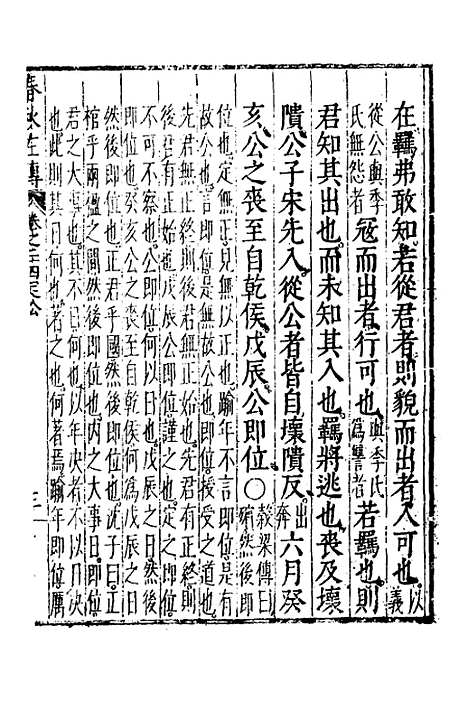 在羈弗敢知若從君者則貌而出者入可也以義
從公與季氏無怨者寇而出者行可也與季氏為讐者若羈也則
君知其出也而未知其入也羈將逃也喪及壞
隤公子宋先入從公者皆自壞隤反出奔六月癸
亥公之喪至自乾侯戊辰公即位○穀梁傳曰殯然後即
位也定無正見無以正也踰年不言即位是有
故公也言即位是無故公也即位授受之道也
先君無正終則後君無正始也先君有正終則
後君有正始也戊辰公即位謹之也定之即位
不可不察也公即位何以日也戊辰之日然後
即位也癸亥公之喪至自乾侯何為戊辰之日
然後即位也正君乎國然後即位也沈子曰正
棺乎兩楹之間然後即位也内之大事日即位
君之大事也其不日何也以年決者不以日
也此則其日何也著之也何著焉踰年即位厲
春秋左傳 卷之 四定公